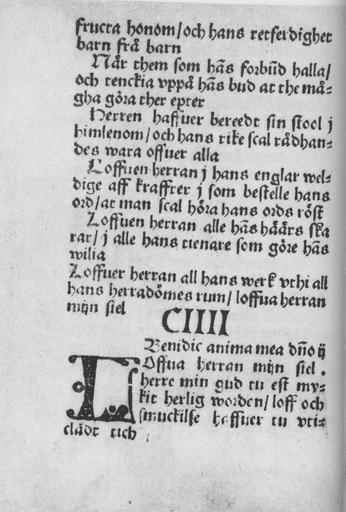 fructa honom/och hans retferdighet
barn frå barn
Når them som hãs forbūd halla/
och tenckia vppå hãs bud at the må-
gha göra ther epter
Herren haffuer bereedt sin stool j
himlenom/och hans rike scal rådhan-
des wara offuer alla
Loffuen herran j hans englar wel-
dige aff kraffter j som bestelle hans
ord/at man scal höra hans ords röst
Loffuen herran alle hãs häärs ska
rar/ j alle hans tienare som göre hãs
wilia
Loffuer herran all hans werk vthi all
hans herradömes rum/loffua herran
mijn siel
CIIII
Benidic anima mea dño ij
Loffua herran mijn siel.
herre min gud tu est my-
kit herlig worden/loff och
smuckilse haffuer tu vti-
clädt tich